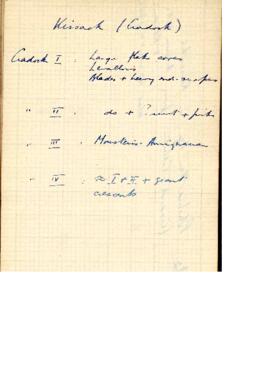 Kissack (Cradock)
Cradock I : Large flake cores
Levallois
Blades + heavy end-scrapers
" II : do +
" III : Mousterio-Aurignacian
" IV : I + II + giant
crescents